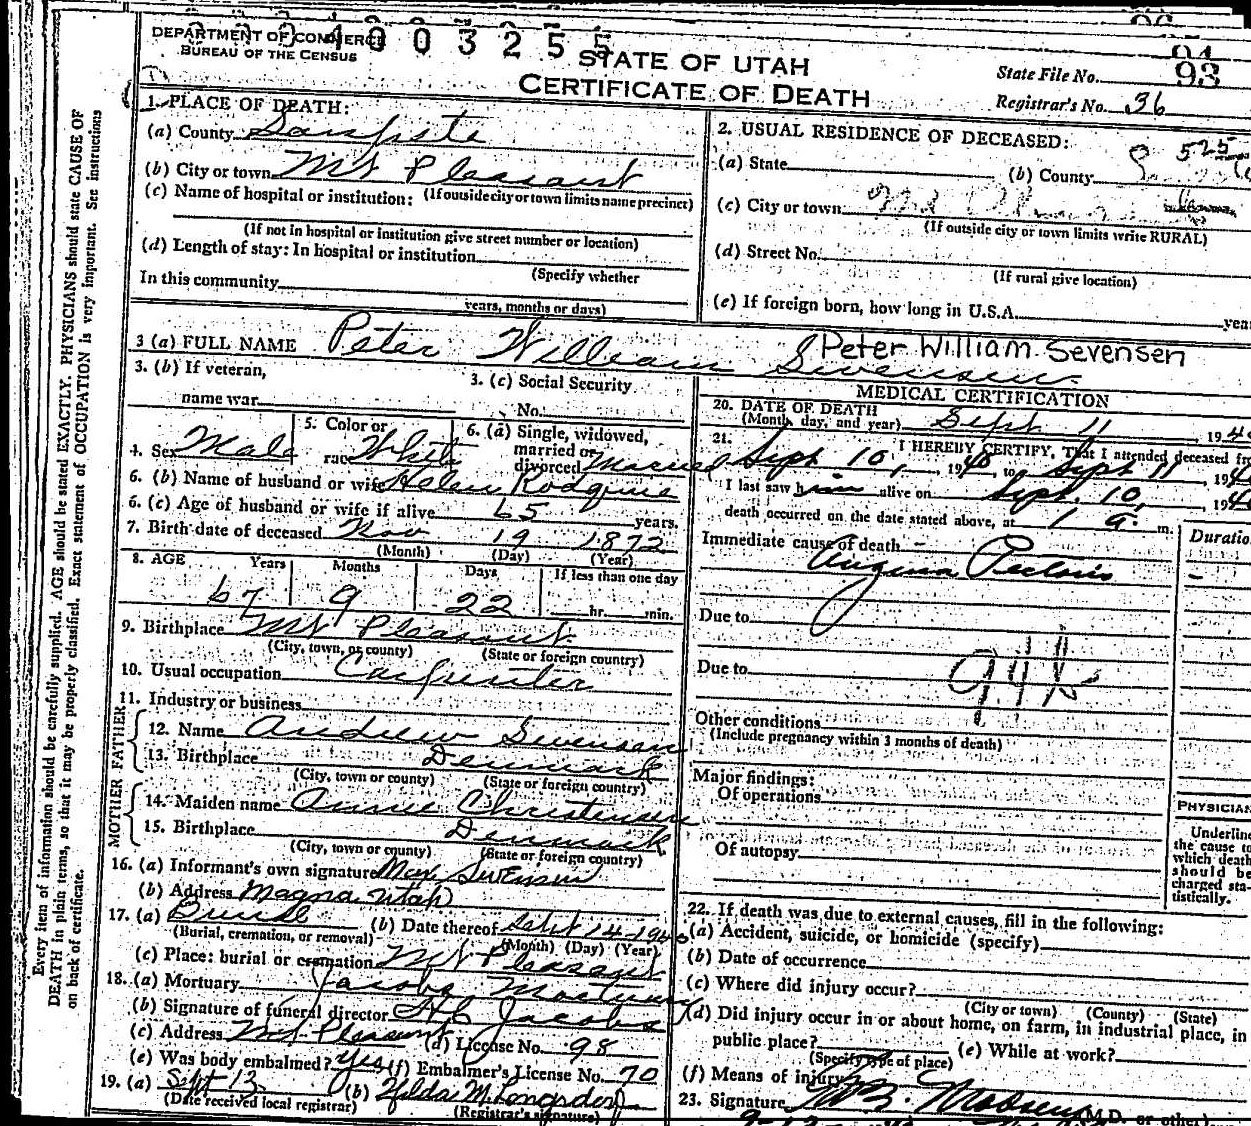 DEPARTMENT OF COMMERCE
BUREAU OF THE CENSUS
3 2 5 5
STATE OF UTAH
CERTIFICATE OF DEATH
State File No. 93
Registrar's No. 36
1. PLACE OF DEATH:
(a) County Sanpete
(b) City or town Mt Pleasant
(c) Name of hospital or institution: (If outside city or town limits name precinct)
(If not in hospital or institution give street number or location)
(d) Length of stay: In hospital or institution
(Specify whether
In this community
years, months or days)
2. USUAL RESIDENCE OF DECEASED:
525
(a) State (b) County
(c) City or town
(If outside city or town limits write RURAL)
(d) Street No.
(If rural give location)
(e) If foreign born, how long in U.S.A.
3 (a) FULL NAME Peter William Swensen
Peter William Sevensen
3. (b) If veteran,
name war
3. (c) Social Security
No.
4. Sex Male
5. Color or race White
6. (a) Single, widowed, married or divorced Married
6. (b) Name of husband or wife Helen
6. (c) Age of husband or wife if alive 65 years.
7. Birth date of deceased Nov 19 1872
(Month) (Day) (Year)
8. AGE Years Months Days If less than one day
67 9 22 hr. min.
9. Birthplace Mt Pleasant
(City, town, or county) (State or foreign country)
10. Usual occupation Carpenter
11. Industry or business
FATHER
12. Name Andrew Swensen
13. Birthplace Denmark
(City, town or county) (State or foreign country)
MOTHER
14. Maiden name Annie Christensen
15. Birthplace Denmark
(City, town or county) (State or foreign country)
16. (a) Informant's own signature Max Swensen
(b) Address Magna Utah
17. (a) Burial (b) Date thereof Sept 14-1940
(Burial, cremation, or removal) (Month) (Day) (Year)
(c) Place: burial or cremation Mt Pleasant
18. (a) Mortuary Jacobs Mortuary
(b) Signature of funeral director Jacobs
(c) Address Mt Pleasant (d) License No. 98
(e) Was body embalmed? Yes (f) Embalmer's License No. 70
19. (a) Sept 13, (b) Hilda M. Longsdorf
(Date received local registrar) (Registrar's signature)
MEDICAL CERTIFICATION
20. DATE OF DEATH
(Month, day, and year) Sept 11, 194
21. I HEREBY CERTIFY, That I attended deceased
Sept 10, 1940, to Sept 11 194
I last saw him alive on Sept. 10, 194
death occurred on the date stated above, at 1 a. m.
Immediate cause of death
Angina Pectoris
Due to
Due to
Other conditions
(Include pregnancy within 3 months of death)
Major findings:
Of operations
Of autopsy
PHYSICIAN
Underline
the cause to
which death
should be
charged sta-
tistically.
22. If death was due to external causes, fill in the following:
(a) Accident, suicide, or homicide (specify)
(b) Date of occurrence
(c) Where did injury occur?
(City or town) (County) (State)
(d) Did injury occur in or about home, on farm, in industrial place, in
public place? (e) While at work?
(Specify type of place)
(f) Means of injury
23. Signature (M.D. or other)
Every item of information should be carefully supplied. AGE should be stated EXACTLY. PHYSICIANS should state CAUSE OF
DEATH in plain terms, so that it may be properly classified. Exact statement of OCCUPATION is very important. See instructions
on back of certificate.